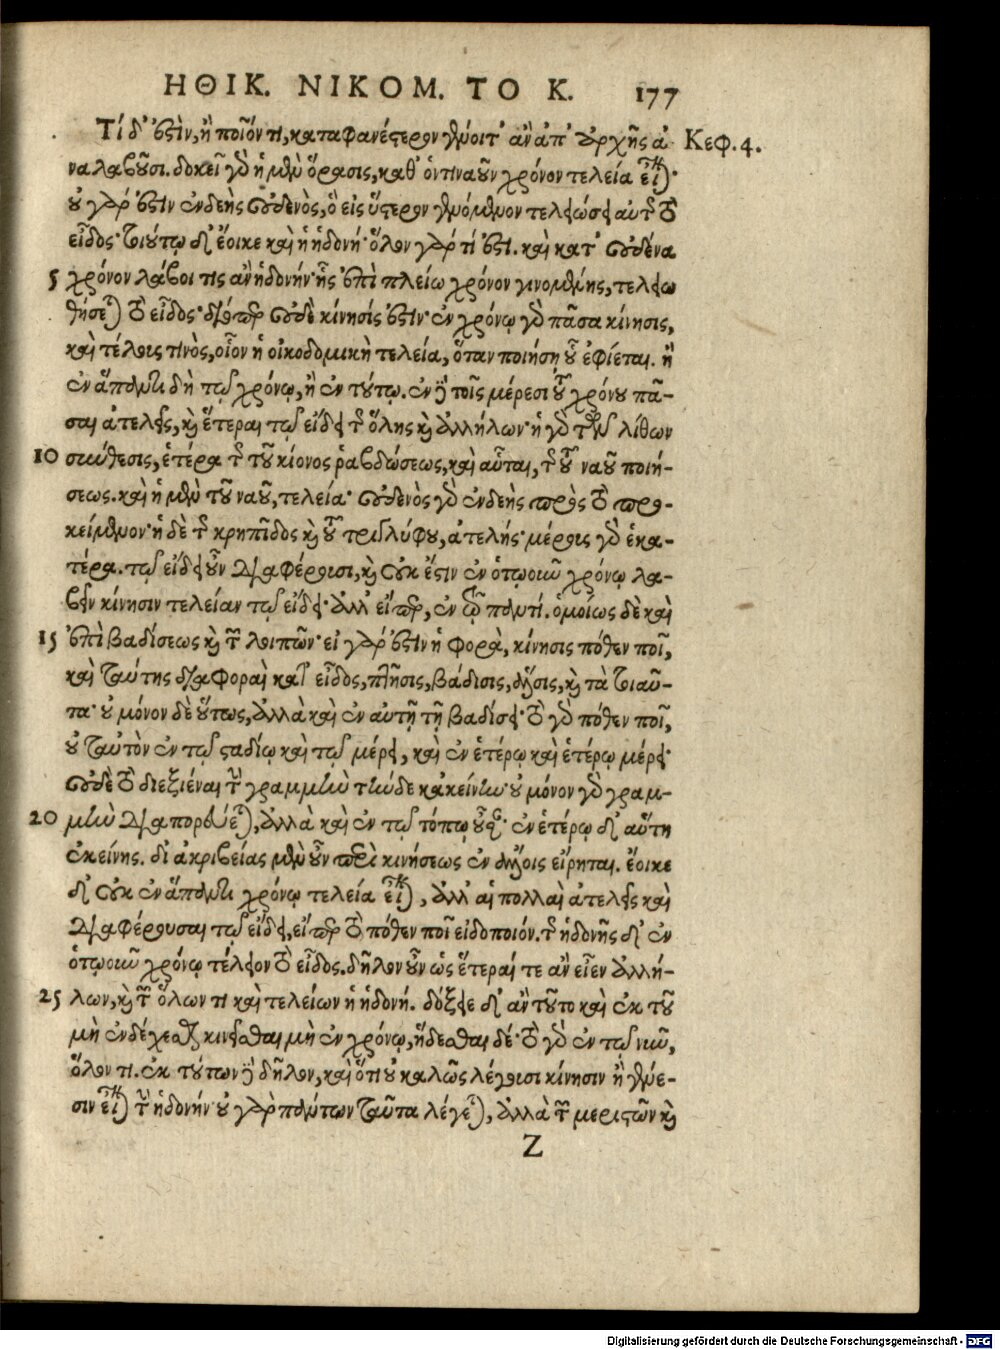 ΗΘΙΚ. ΝΙΚΟΜ. ΤΟ Κ. 177
Τί δ' ἐστὶν, ἢ ποῖόν τι, καταφανέστερον γένοιτ' ἂν ἀπ' ἀρχῆς ἀ- Κεφ. 4.
ναλαβοῦσι. δοκεῖ γὰρ ἡ μὲν ὅρασις, καθ' ὁντιναοῦν χρόνον τελεία εἶναι·
οὐ γάρ ἐστιν ἐνδεὴς οὐδενὸς, ὃ εἰς ὕστερον γενόμενον τελειώσει αὐτῆς τὸ
εἶδος· τοιούτῳ δ' ἔοικε καὶ ἡ ἡδονή· ὅλον γάρ τί ἐστι. καὶ κατ' οὐδένα
5 χρόνον λάβοι τις ἂν ἡδονὴν ἧς ἐπὶ πλείω χρόνον γινομένης, τελειω
θήσεται τὸ εἶδος· διόπερ οὐδὲ κίνησίς ἐστιν· ἐν χρόνῳ γὰρ πᾶσα κίνησις,
καὶ τέλους τινὸς, οἷον ἡ οἰκοδομικὴ τελεία, ὅταν ποιήσῃ οὗ ἐφίεται. ἢ
ἐν ἅπαντι δὴ τῷ χρόνῳ, ἢ ἐν τούτῳ. ἐν δὲ τοῖς μέρεσι τοῦ χρόνου πᾶ-
σαι ἀτελεῖς, καὶ ἕτεραι τῷ εἴδει τῆς ὅλης καὶ ἀλλήλων· ἡ γὰρ τῶν λίθων
10 σύνθεσις, ἑτέρα τῆς τοῦ κίονος ῥαβδώσεως, καὶ αὗται, τῆς τοῦ ναοῦ ποιή-
σεως. καὶ ἡ μὲν τοῦ ναοῦ, τελεία· οὐδενὸς γὰρ ἐνδεὴς πρὸς τὸ προ-
κείμενον· ἡ δὲ τῆς κρηπῖδος καὶ τοῦ τριγλύφου, ἀτελής· μέρους γὰρ ἑκα-
τέρα. τῷ εἴδει οὖν διαφέρουσι, καὶ οὐκ ἔστιν ἐν ὁτῳοῦν χρόνῳ λα-
βεῖν κίνησιν τελείαν τῷ εἴδει· ἀλλ' εἴπερ, ἐν τῷ παντί. ὁμοίως δὲ καὶ
15 ἐπὶ βαδίσεως καὶ τῶν λοιπῶν· εἰ γάρ ἐστιν ἡ φορὰ, κίνησις πόθεν ποῖ,
καὶ ταύτης διαφοραὶ κατ' εἶδος, πτῆσις, βάδισις, ἅλσις, καὶ τὰ τοιαῦ-
τα· οὐ μόνον δὲ οὕτως, ἀλλὰ καὶ ἐν αὐτῇ τῇ βαδίσει· τὸ γὰρ πόθεν ποῖ,
οὐ ταὐτὸν ἐν τῷ σταδίῳ καὶ τῷ μέρει, καὶ ἐν ἑτέρῳ καὶ ἑτέρῳ μέρει·
οὐδὲ τὸ διεξιέναι τὴν γραμμὴν τήνδε κἀκείνην· οὐ μόνον γὰρ γραμ-
20 μὴν διαπορεύεται, ἀλλὰ καὶ ἐν τῷ τόπῳ οὖσαν· ἐν ἑτέρῳ δ' αὕτη
ἐκείνης. δι' ἀκριβείας μὲν οὖν περὶ κινήσεως ἐν ἄλλοις εἴρηται. ἔοικε
δ' οὐκ ἐν ἅπαντι χρόνῳ τελεία εἶναι, ἀλλ' αἱ πολλαὶ ἀτελεῖς καὶ
διαφέρουσαι τῷ εἴδει, εἴπερ τὸ πόθεν ποῖ εἰδοποιόν. τῆς ἡδονῆς δ' ἐν
ὁτῳοῦν χρόνῳ τέλειον τὸ εἶδος. δῆλον οὖν ὡς ἕτεραί τε ἂν εἶεν ἀλλή-
25 λων, καὶ τῶν ὅλων τι καὶ τελείων ἡ ἡδονή. δόξειε δ' ἂν τοῦτο καὶ ἐκ τοῦ
μὴ ἐνδέχεσθαι κινεῖσθαι μὴ ἐν χρόνῳ, ἥδεσθαι δέ· τὸ γὰρ ἐν τῷ νῦν,
ὅλον τι. ἐκ τούτων δὲ δῆλον, καὶ ὅτι οὐ καλῶς λέγουσι κίνησιν ἢ γένε-
σιν εἶναι τὴν ἡδονήν· οὐ γὰρ πάντων ταῦτα λέγεται, ἀλλὰ τῶν μεριστῶν καὶ
Z
Digitalisierung gefördert durch die Deutsche Forschungsgemeinschaft - DFG